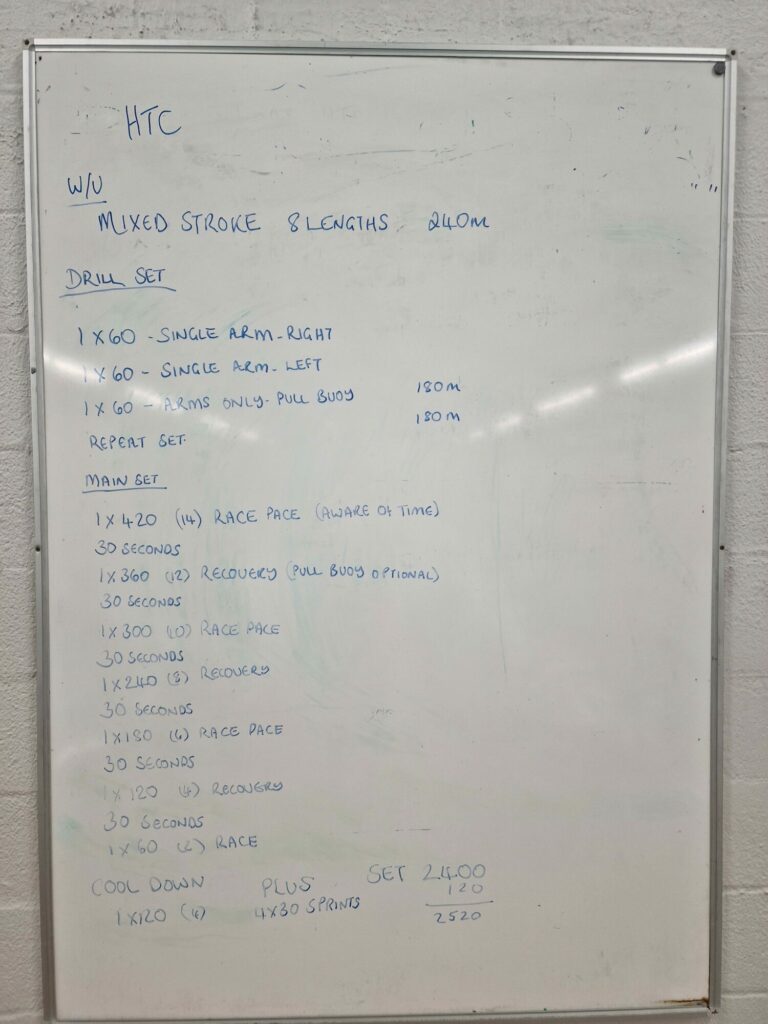 HTC
W/U
MIXED STROKE 8 LENGTHS 240m
DRILL SET
1 X 60 - SINGLE ARM - RIGHT
1 X 60 - SINGLE ARM - LEFT
1 X 60 - ARMS ONLY - PULL BUOY 180m
REPEAT SET. 180m
MAIN SET
1 X 420 (14) RACE PACE (AWARE OF TIME)
30 SECONDS
1 X 360 (12) RECOVERY (PULL BUOY OPTIONAL)
30 SECONDS
1 X 300 (10) RACE PACE
30 SECONDS
1 X 240 (8) RECOVERY
30 SECONDS
1 X 180 (6) RACE PACE
30 SECONDS
1 X 120 (4) RECOVERY
30 SECONDS
1 X 60 (2) RACE
COOL DOWN PLUS SET 2400
120
1 X 120 (4) 4 X 30 SPRINTS 2520